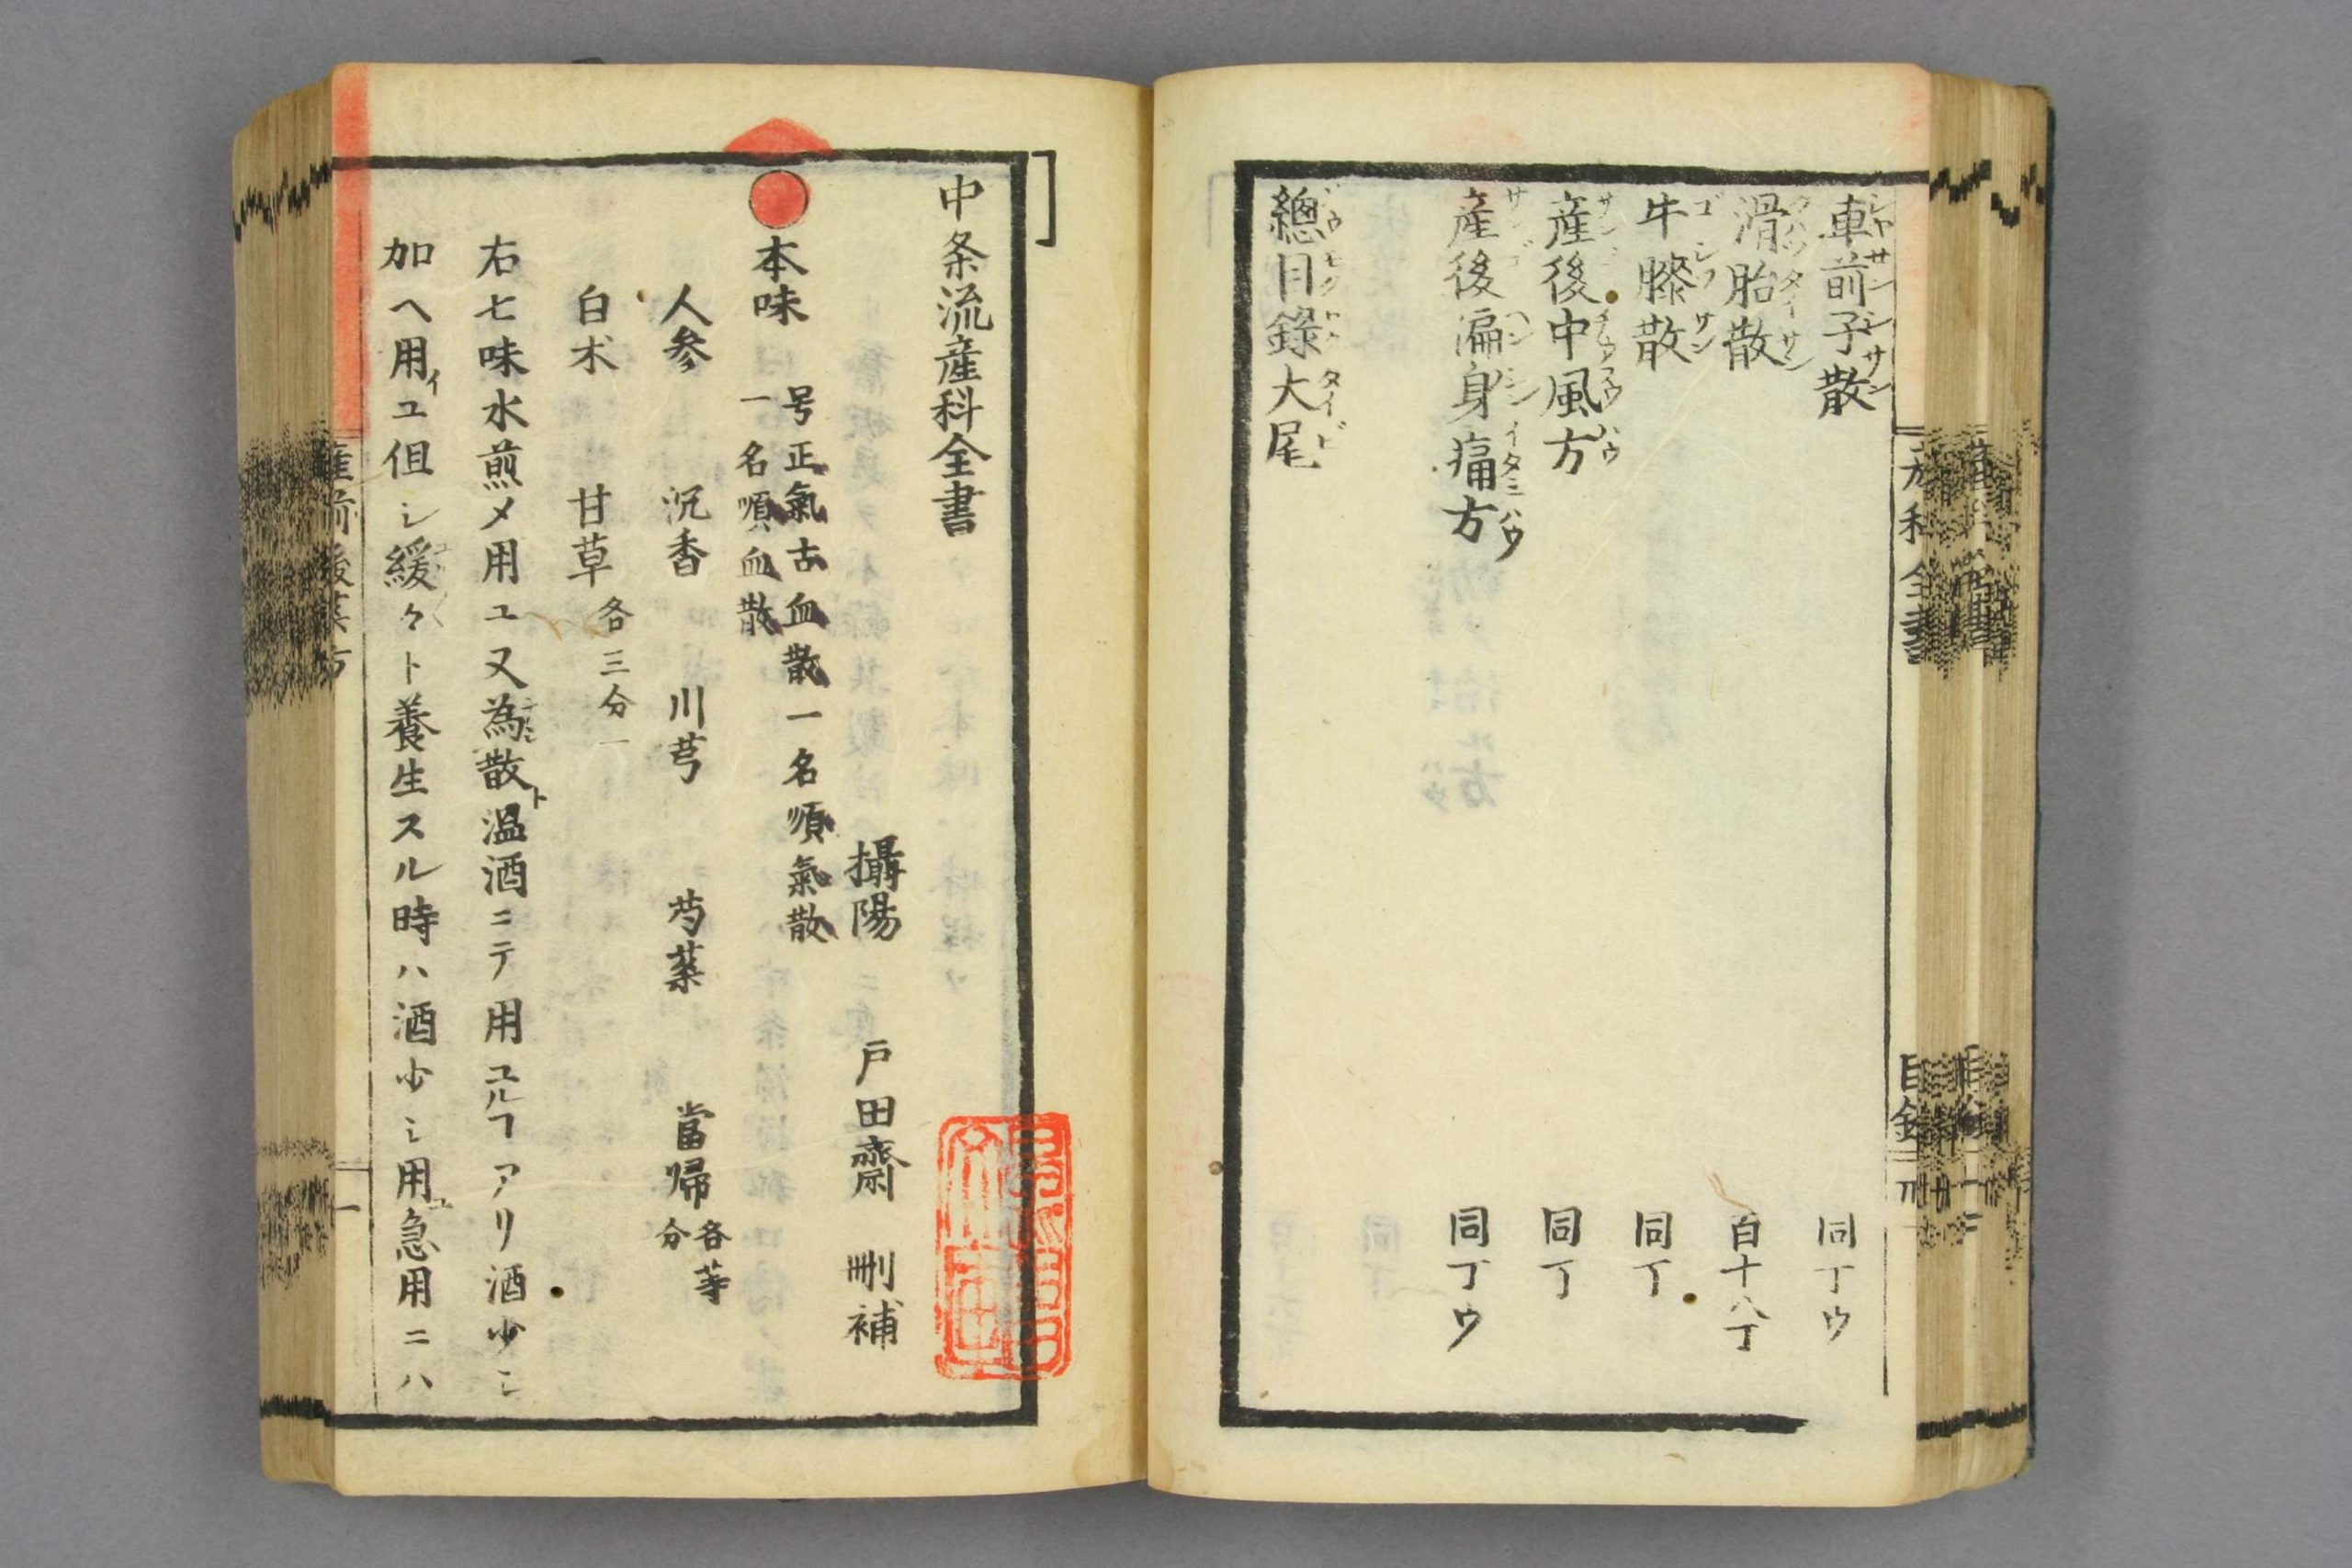 車前子散 同丁ウ
滑胎散 百十八丁
牛膝散 同丁
産後中風方 同丁
産後遍身痛方 同丁ウ
總目錄大尾
中条流産科全書
攝陽 戸田齋 刪補
本味
号正氣古血散一名順氣散
一名順血散
人参 沉香 川芎 芍薬 當帰 各等分
白朮 甘草 各三分一
右七味水煎メ用ユ又為散ト温酒ニテ用ユルヿアリ酒少シ
加ヘ用イユ但シ緩々ト養生スル時ハ酒少シ用ユ急用ニハ